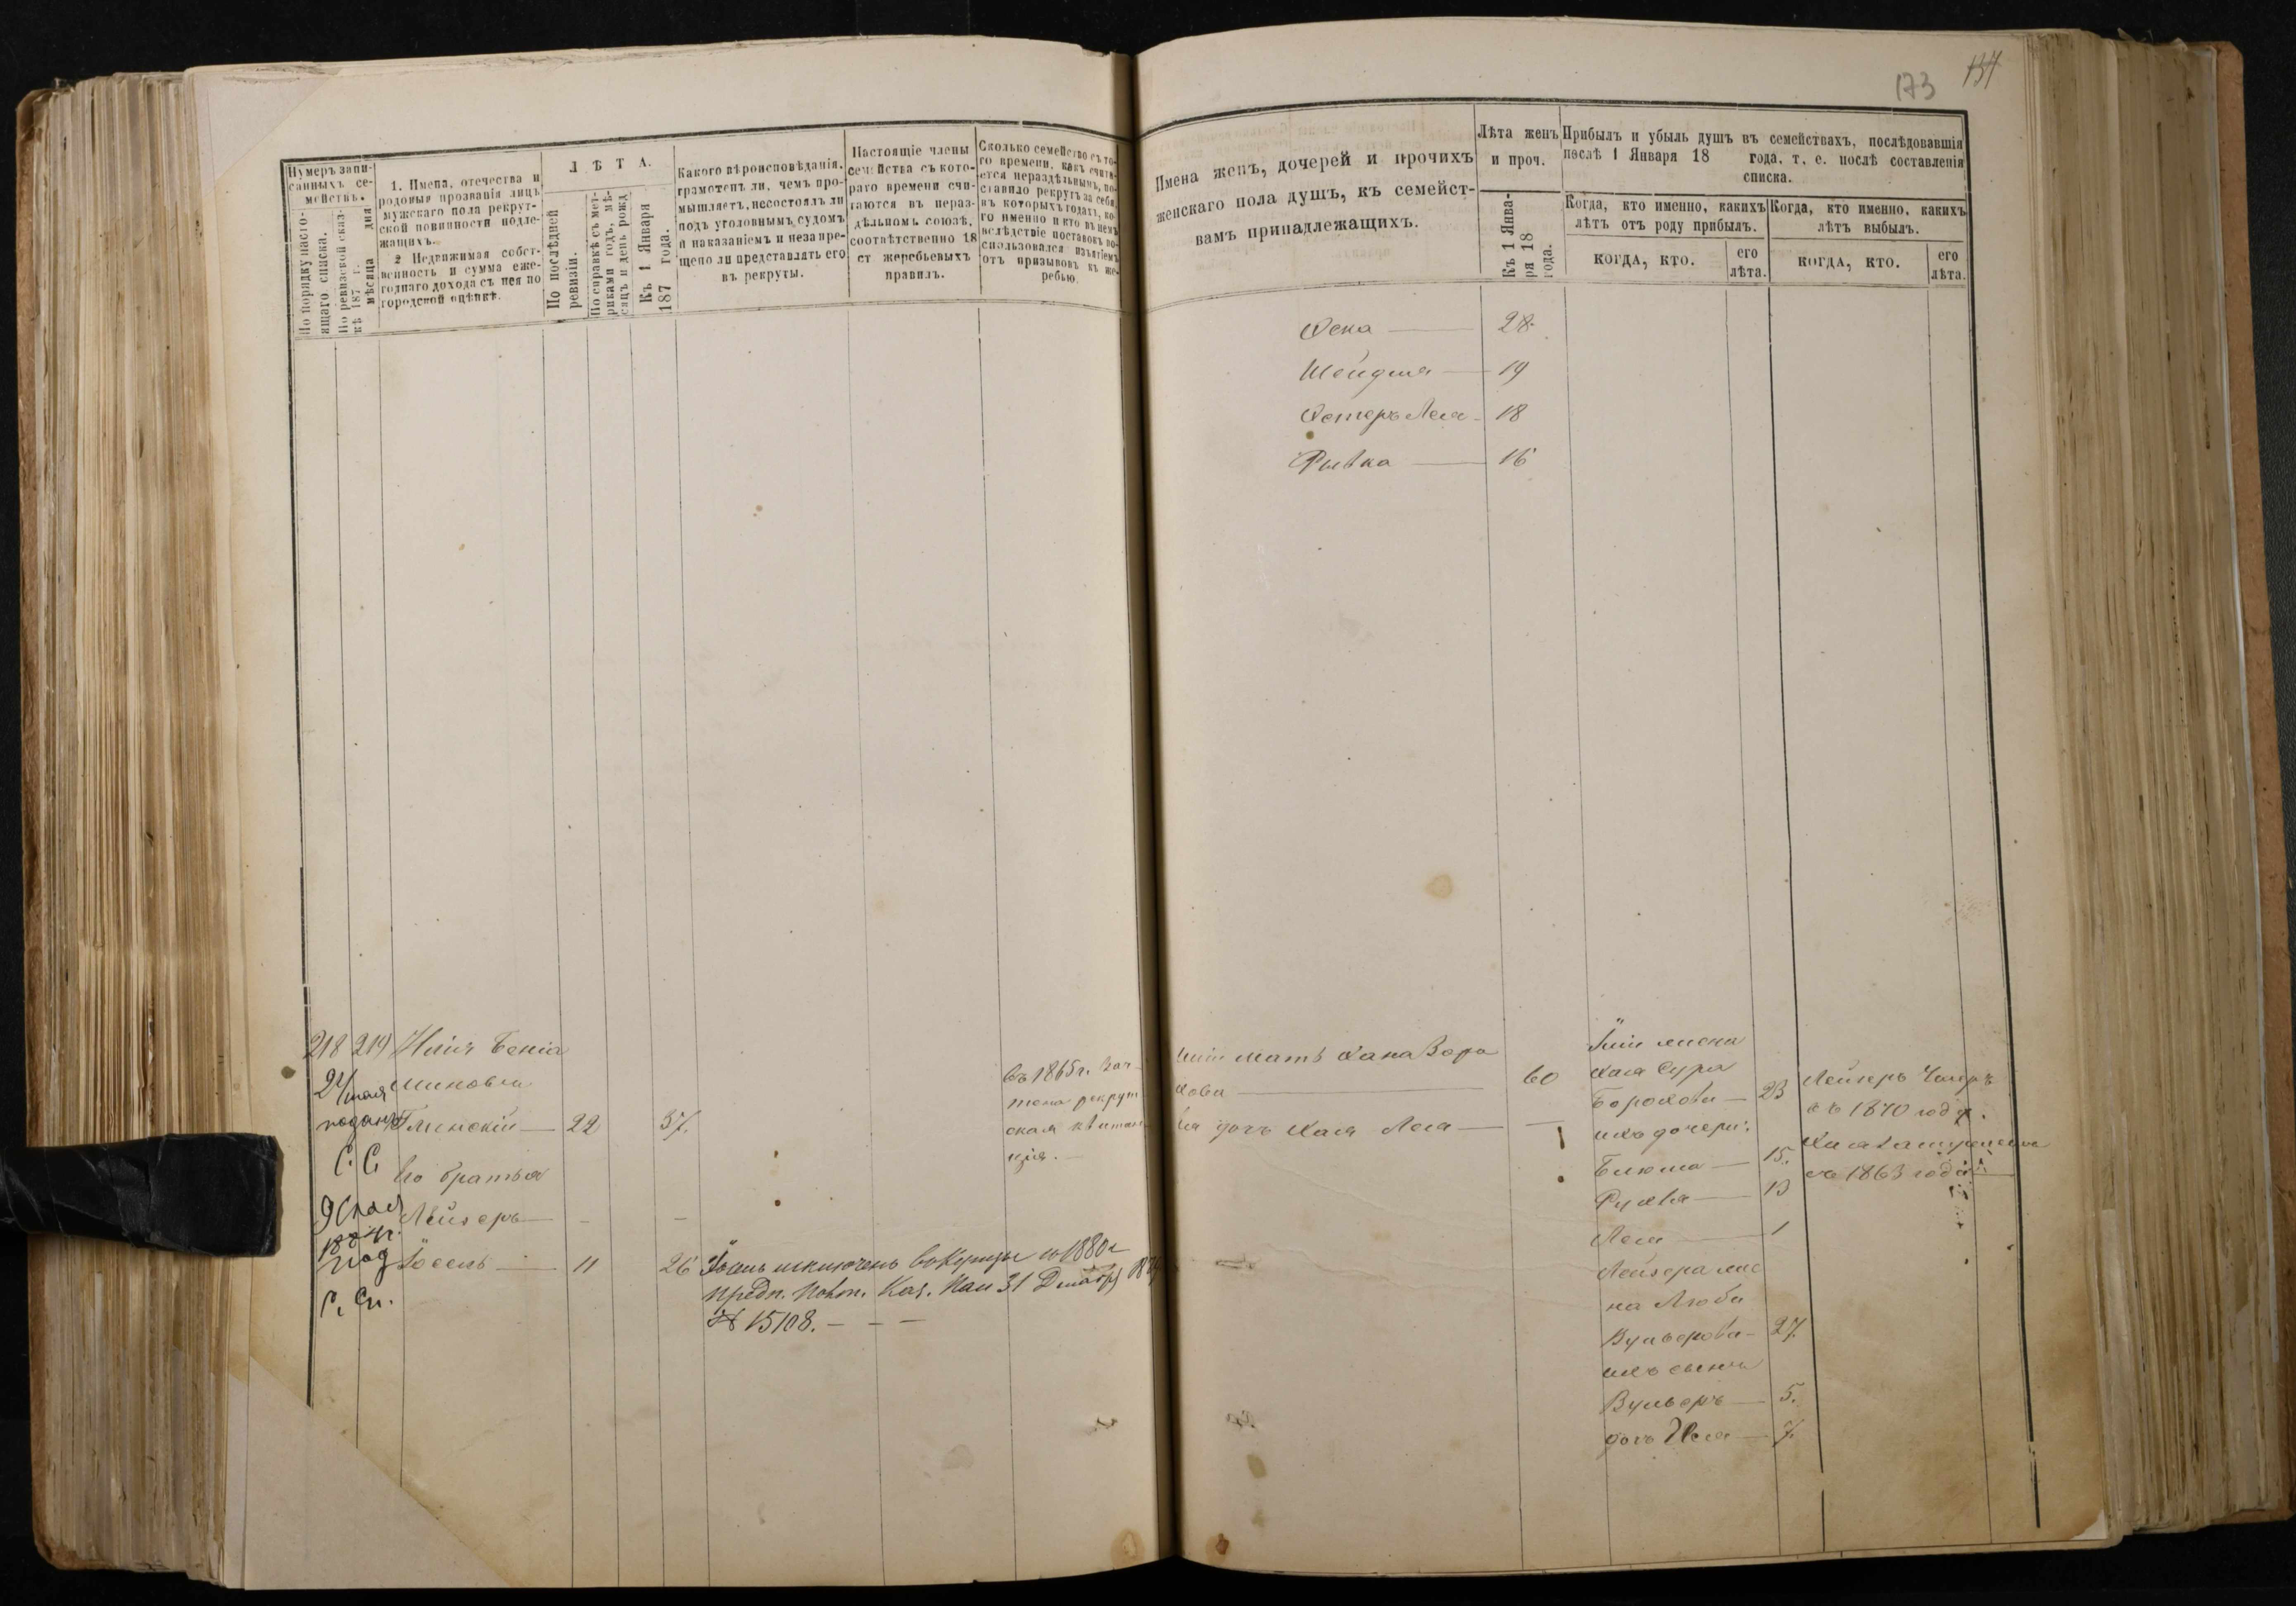 173 137
Нумеръ запи-
санныхъ се-
мействъ.
По порядку насто-
ящаго списка.
По ревизской сказ-
кѣ 187 г.
мѣсяца дня
1. Имена, отечества и
родовыя прозванія лицъ
мужскаго пола рекрут-
ской повинности подле-
жащихъ.
2 Недвижимая собст-
венность и сумма еже-
годнаго дохода съ нея по
городской оцѣнкѣ.
ЛѢТА.
По послѣдней
ревизіи.
По справкѣ съ мет-
риками годъ, мѣ-
сяцъ и день рожд
Къ 1 Января
187 года.
Какого вѣроисповѣданія,
грамотенъ ли, чемъ про-
мышляетъ, несостоялъ ли
подъ уголовнымъ судомъ
и наказаніемъ и незапре-
щено ли представлять его
въ рекруты.
Настоящіе члены
семейства съ кото-
раго времени счи-
таются въ нераз-
дѣльномъ союзѣ,
соотвѣтственно 18
ст жеребьевыхъ
правилъ.
Сколько семейство съ то-
го времени, какъ счита-
ется нераздѣльнымъ, по-
ставило рекрутъ за себя,
въ которыхъ годахъ, ко-
го именно и кто въ немъ
вслѣдствіе поставокъ во-
спользовался изъятіемъ
отъ призывовъ къ же-
ребью.
Имена женъ, дочерей и прочихъ
женскаго пола душъ, къ семейст-
вамъ принадлежащихъ.
Лѣта женъ
и проч.
Къ 1 Янва-
ря 18
года.
Прибыль и убыль душъ въ семействахъ, послѣдовавшія
послѣ 1 Января 18 года, т. е. послѣ составленія
списка.
Когда, кто именно, какихъ
лѣтъ отъ роду прибылъ.
когда, кто.
его
лѣта.
Когда, кто именно, какихъ
лѣтъ выбылъ.
когда, кто.
его
лѣта.
28
Шейдля — 19
Эстеръ Леа - 18
Рывка — 16
218 219
Глинскій — 22 37.
С. С. Его братья
Лейзеръ — - -
Іосель — 11 26
Іосель исключенъ въ Купцы съ 1880 г
предп. Ков. Каз. Пал 31 Декабр
№ 15108. - - -
въ 1865 г. Зач-
тена рекрут
ская квитан-
ція. -
мать Хана
60
дочь Хая Леа —
жена
Хая Сура
Борохова — 23
ихъ дочери:
Блюма — 15.
Рухля — 13
Леа — 1
Лейзера же
на Люба
Вульфова - 27.
ихъ сынъ
Вульфъ — 5.
дочь — 7.
Лейзеръ Умеръ
въ 1870 году.
Хая
съ 1863 года